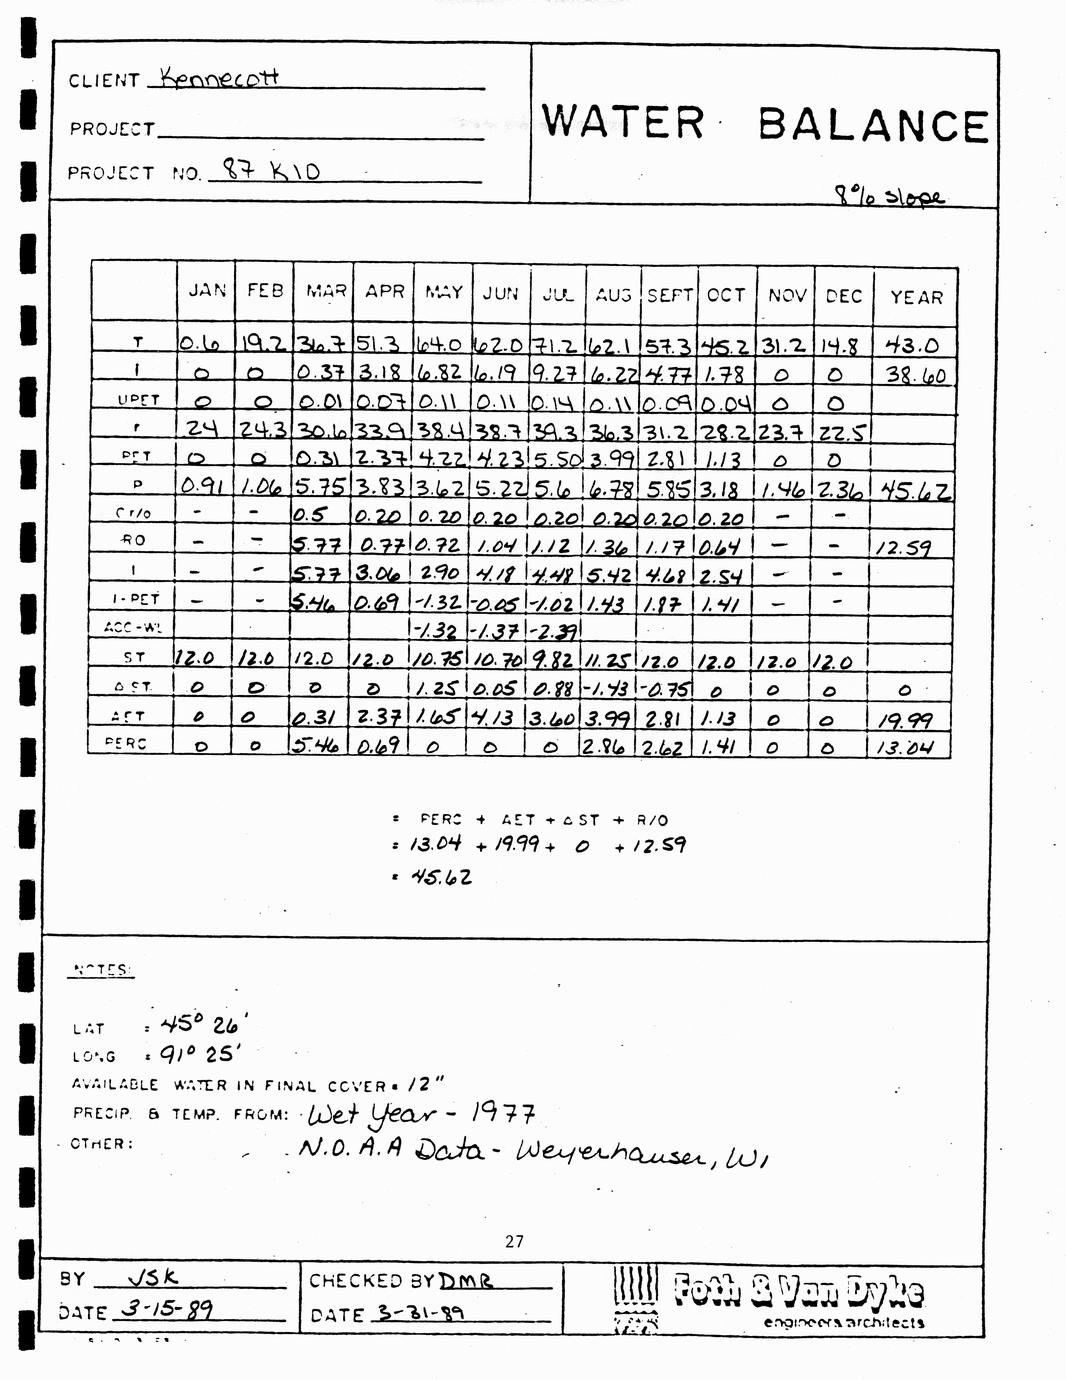 CLIENT Kennecott
PROJECT
PROJECT NO. 87 K10
WATER BALANCE
8% slope
JAN FEB MAR APR MAY JUN JUL AUG SEPT OCT NOV DEC YEAR
T 0.6 19.2 36.7 51.3 64.0 62.0 71.2 62.1 57.3 45.2 31.2 14.8 43.0
I 0 0 0.37 3.18 6.82 6.19 9.27 6.22 4.77 1.78 0 0 38.60
UPET 0 0 0.01 0.07 0.11 0.11 0.14 0.11 0.09 0.04 0 0
r 24 24.3 30.6 33.9 38.4 38.7 39.3 36.3 31.2 28.2 23.7 22.5
PET 0 0 0.31 2.37 4.22 4.23 5.50 3.99 2.81 1.13 0 0
P 0.91 1.06 5.75 3.83 3.62 5.22 5.6 6.78 5.85 3.18 1.46 2.36 45.62
C r/o - - 0.5 0.20 0.20 0.20 0.20 0.20 0.20 0.20 - -
RO - - 5.77 0.77 0.72 1.04 1.12 1.36 1.17 0.64 - - 12.59
I - - 5.77 3.06 2.90 4.18 4.48 5.42 4.68 2.54 - -
I-PET - - 5.46 0.69 -1.32 -0.05 -1.02 1.43 1.87 1.41 - -
ACC-WL -1.32 -1.37 -2.39
ST 12.0 12.0 12.0 12.0 10.75 10.70 9.82 11.25 12.0 12.0 12.0 12.0
Δ ST. 0 0 0 0 1.25 0.05 0.88 -1.43 -0.75 0 0 0 0
AET 0 0 0.31 2.37 1.65 4.13 3.60 3.99 2.81 1.13 0 0 19.99
PERC 0 0 5.46 0.69 0 0 0 2.86 2.62 1.41 0 0 13.04
= PERC + AET + Δ ST + R/O
= 13.04 + 19.99 + 0 + 12.59
= 45.62
NOTES:
LAT : 45° 26'
LONG : 91° 25'
AVAILABLE WATER IN FINAL COVER = 12"
PRECIP. & TEMP. FROM: Wet Year - 1977
OTHER: N.O.A.A Data - Weyerhauser, WI
27
BY JSK
DATE 3-15-89
CHECKED BY DMR
DATE 3-31-89
Foth & Van Dyke
engineers architects